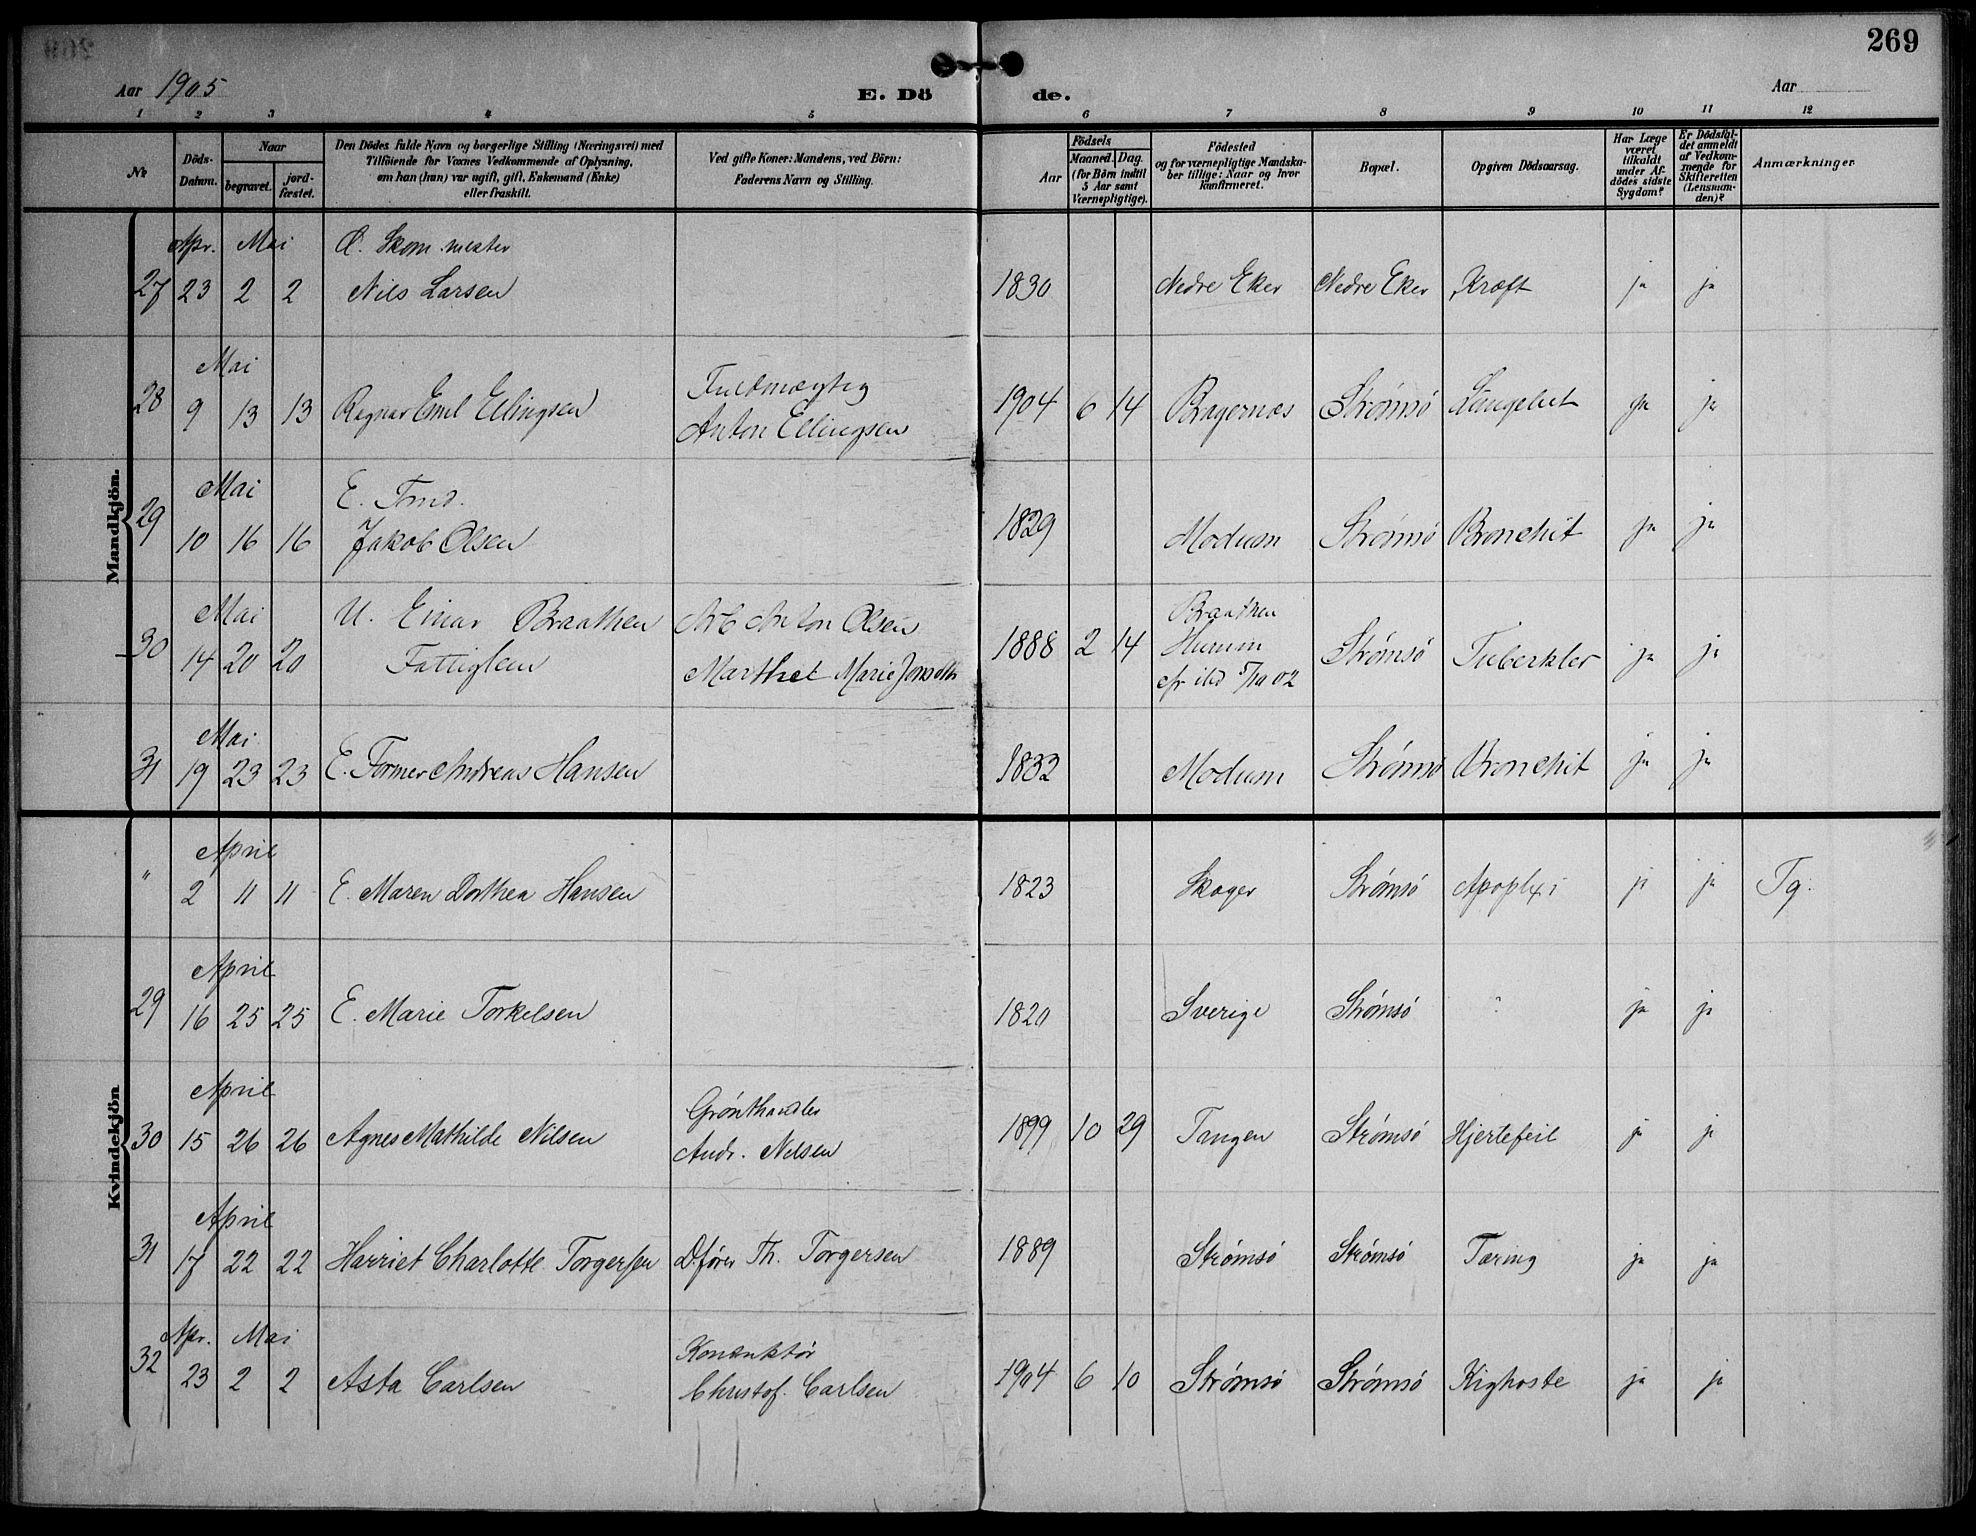 269
Aar 1905
E. Dö de.
Aar
1 2 3 4 5 6 7 8 9 10 11 12
№
Döds-Datum.
Naar
begravet.
jord-fæstet.
Den Dödes fulde Navn og borgerlige Stilling (Næringsvei) med
Tilföiende for Voxnes Vedkommende af Oplysning,
om han (hun) var ugift, gift, Enkemand (Enke)
eller fraskilt.
Ved gifte Koner: Mandens, ved Börn:
Faderens Navn og Stilling.
Födsels
Aar
Maaned. Dag.
(for Börn indtil
5 Aar samt
Værnepligtige).
Födested
og for værnepligtige Mandska-
ber tillige: Naar og hvor
konfirmeret.
Bopæl.
Opgiven Dödsaarsag.
Har Læge
været
tilkaldt
under Af-
dödes sidste
Sygdom?
Er Dödsfal-
det anmeldt
af Vedkom-
mende for
Skifteretten
(Lensman-
den)?
Anmærkninger
Mandkjön.
Apr. Mai
Skom. mester
27 23 2 2 Nils Larsen 1830 Nedre Eker Nedre Eker Kræft ja ja
Mai
Fuldmægtig
28 9 13 13 Ragnar Emil Ellingsen Anton Ellingsen 1904 6 14 Bragernæs Strømsø ja ja
Mai
E.
29 10 16 16 Jakob Olsen 1829 Modum Strømsø Bronchit ja ja
Mai
U. Einar Braathen Arb Anton Olsen Braathen
30 14 20 20 Fattiglem Marthe Marie 1888 2 14 Hurum Strømsø Tuberkler ja ja
5/10 02
Mai
31 19 23 23 E. Former Andreas Hansen 1832 Modum Strømsø Bronchit ja ja
Kvindekjön
April
" 2 11 11 E. Maren Dorthea Hansen 1823 Skoger Strømsø Apoplexi ja ja Tg.
April
29 16 25 25 E. Marie Torkelsen 1820 Sverige Strømsø " ja ja
April
Grønthandler
30 15 26 26 Agnes Mathilde Nilsen Andr. Nilsen 1899 10 29 Tangen Strømsø Hjertefeil ja ja
April
31 17 22 22 Harriet Charlotte Torgersen D.fører Th. Torgersen 1889 Strømsø Strømsø Tæring ja ja
Apr. Mai
Konduktør
32 23 2 2 Asta Carlsen Christof. Carlsen 1904 6 10 Strømsø Strømsø Kighoste ja ja